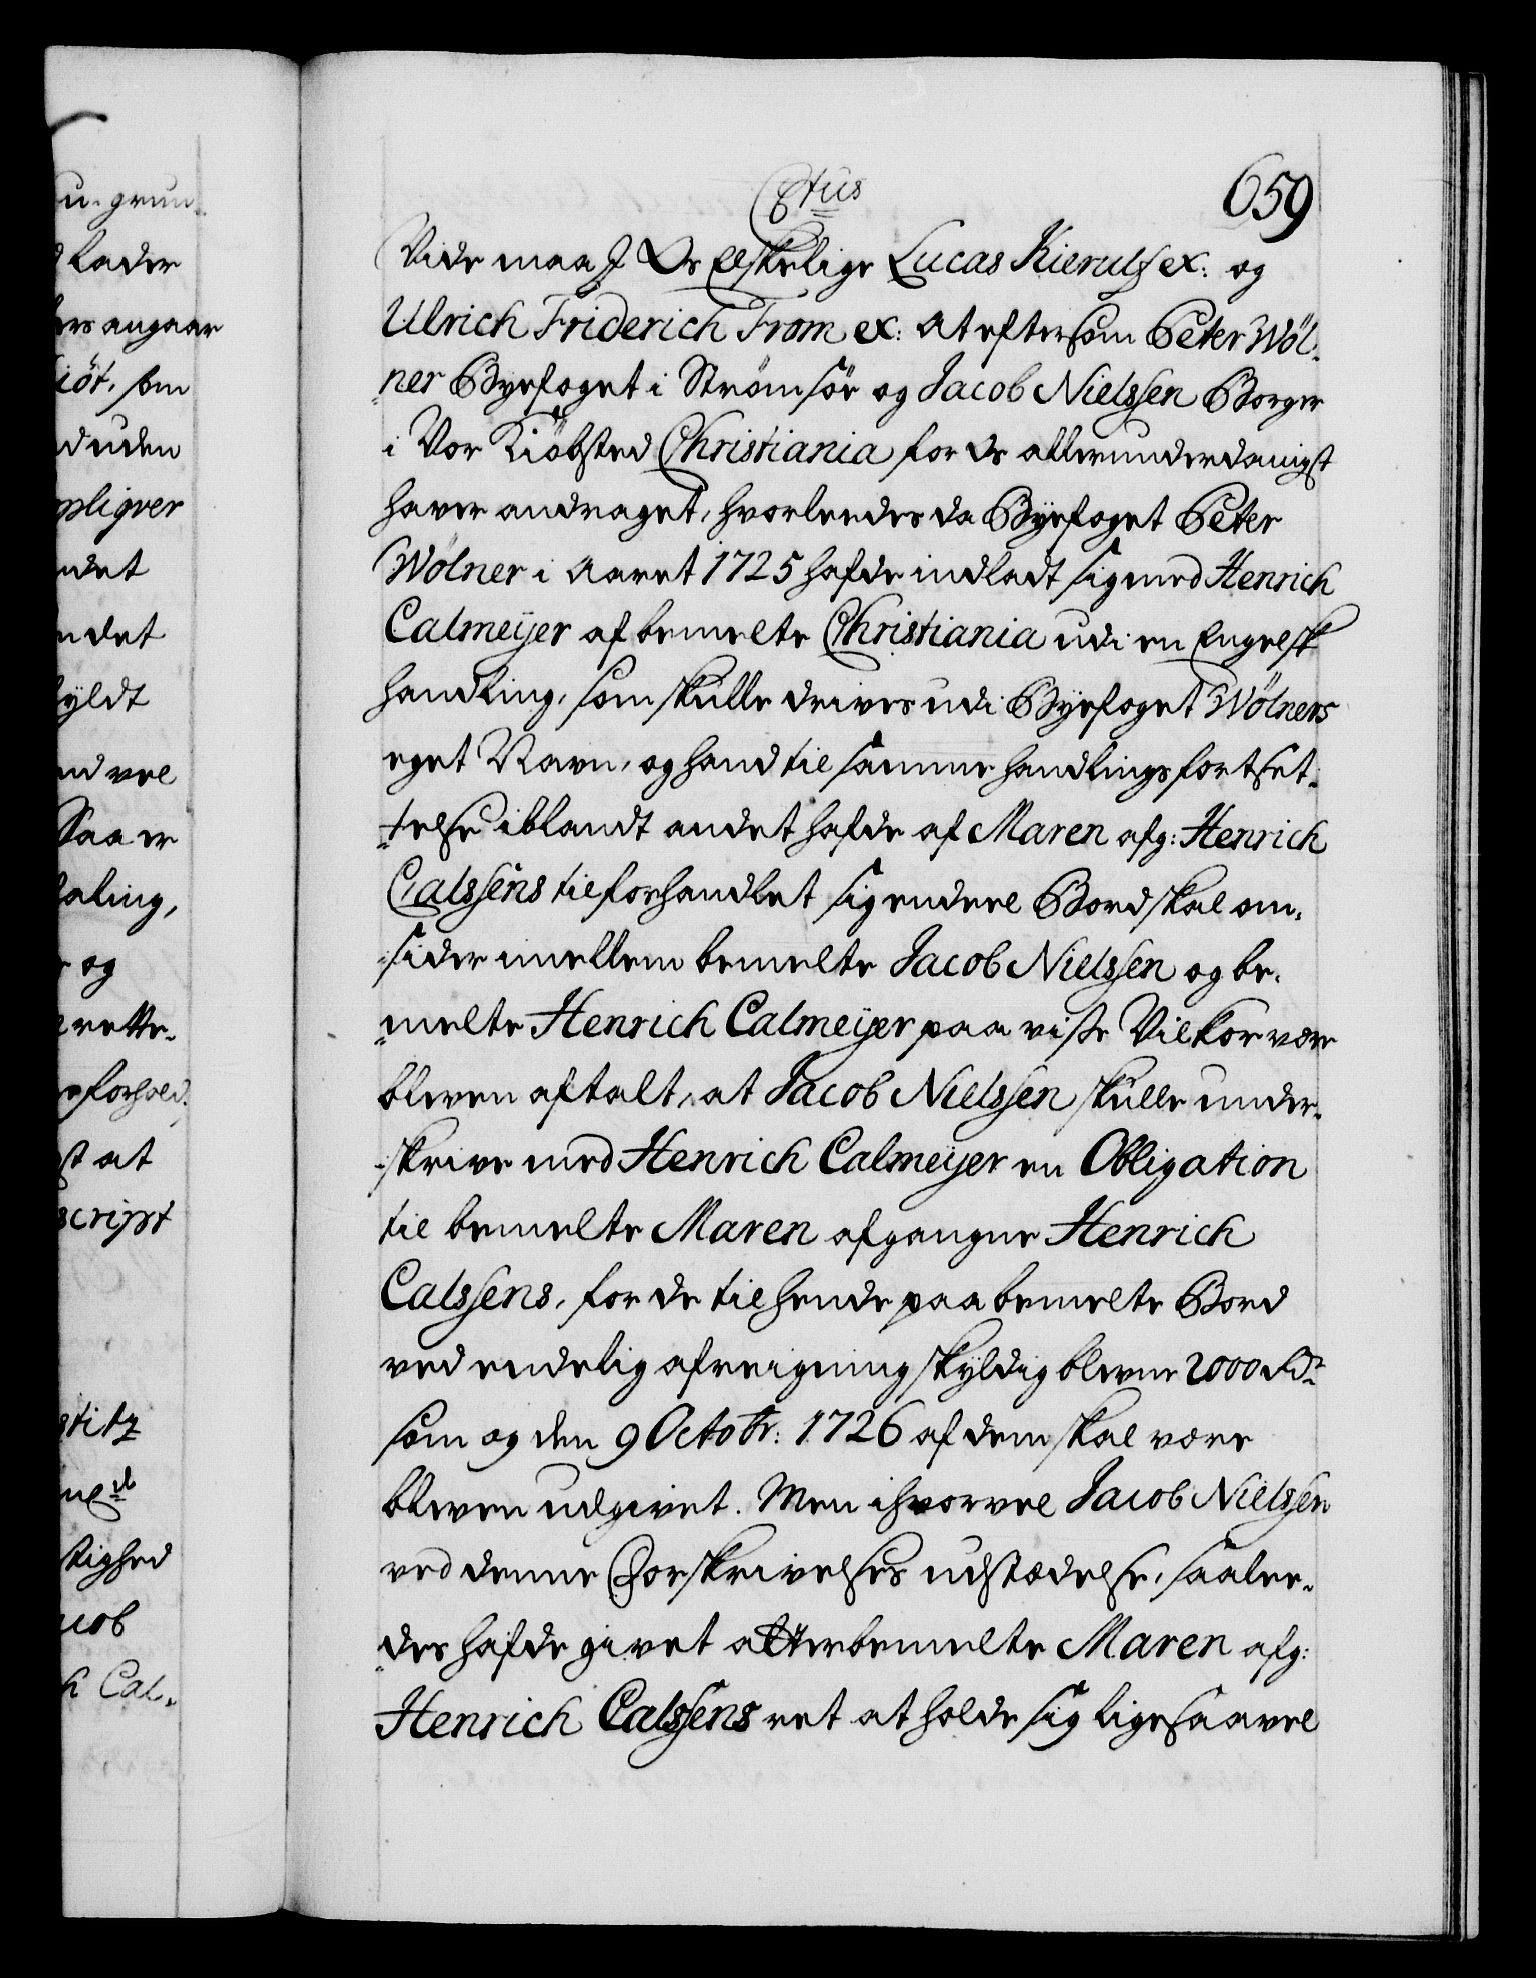 659
C6tus
Vide maa I Os Elskelige Lucas Kierulf ex: og
Ulrich Friderich From ex: At eftersom Peter Wöl-
ner Byefoget i Strömsöe og Jacob Nielssen Borger
i Vor Kiöbsted Christiania for Os allerunderdanigst
haver andraget, hvorleedes da Byefoget Peter
Wölner i Aaret 1725 hafde indladt sig med Henrich
Calmeÿer af bemelte Christiania udi en Engelsk
handling, som skulle drives udi Byefoget Wölners
eget Navn, og hand til samme handlings fortset-
telse iblandt andet hafde af Maren afg: Henrich
Calssens tilforhandlet sig endeel Bord skal om-
sider imellem bemelte Jacob Nielssen og be-
melte Henrich Calmeÿer paa visse Vilkor være
bleven aftalt, at Jacob Nielssen skulle under-
skrive med Henrich Calmeÿer en Obligation
til bemelte Maren afgangne Henrich
Calssens, for de til hende paa bemelte Bord
ved endelig afreigning skyldig blevne 2000 Rdr
som og den 9 Octobr: 1726 af dem skal være
bleven udgivet. Men ihvorvel Jacob Nielssen
ved denne Forskrivelses udstædelse, saalee-
des hafde givet atterbemelte Maren afg:
Henrich Calssens ret at holde sig ligesaavel
u- grun-
lader
ers angaar
iöt, som
d uden
pligver
ndet
ndet
yldt
nd vel
Saa er
aling,
og
rette-
forhold-
st at
script
stitz
tighed
cob
h Cal-